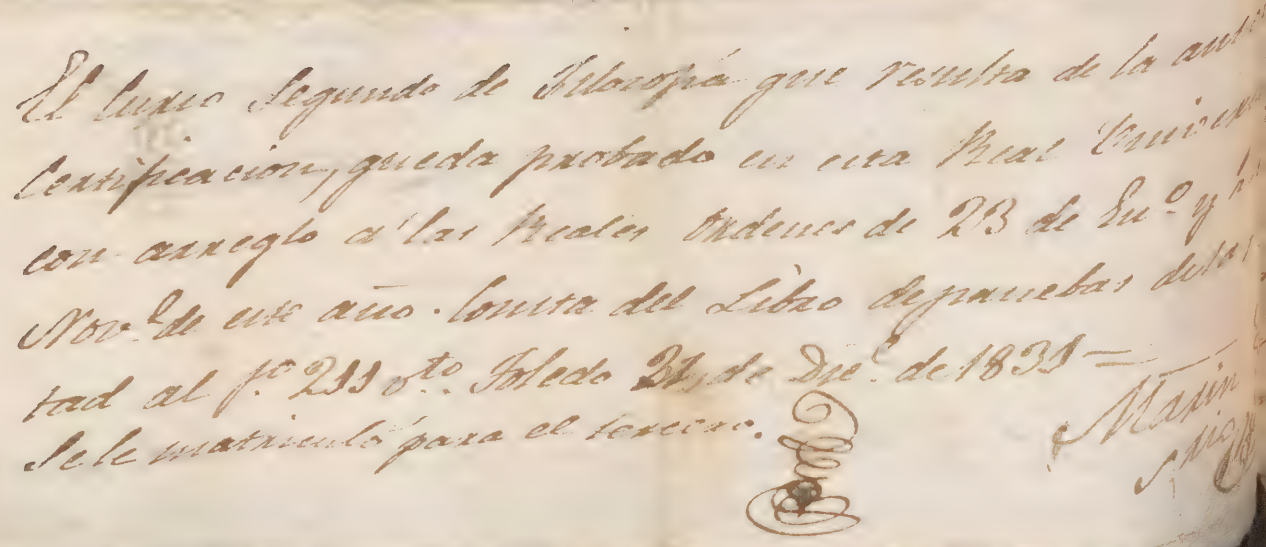 El Curso Segundo de Filosofia que resulta de la ant
Certificacion, queda probado en esta Real Univers
con arreglo a las Reales Ordenes de 23 de En.º y
Nov.e de este año. Consta del Libro de pruebas de
tad al f.º 211 v.to Toledo 31, de Dic.e de 1831 —
Se le matriculó para el tercero.
Martin